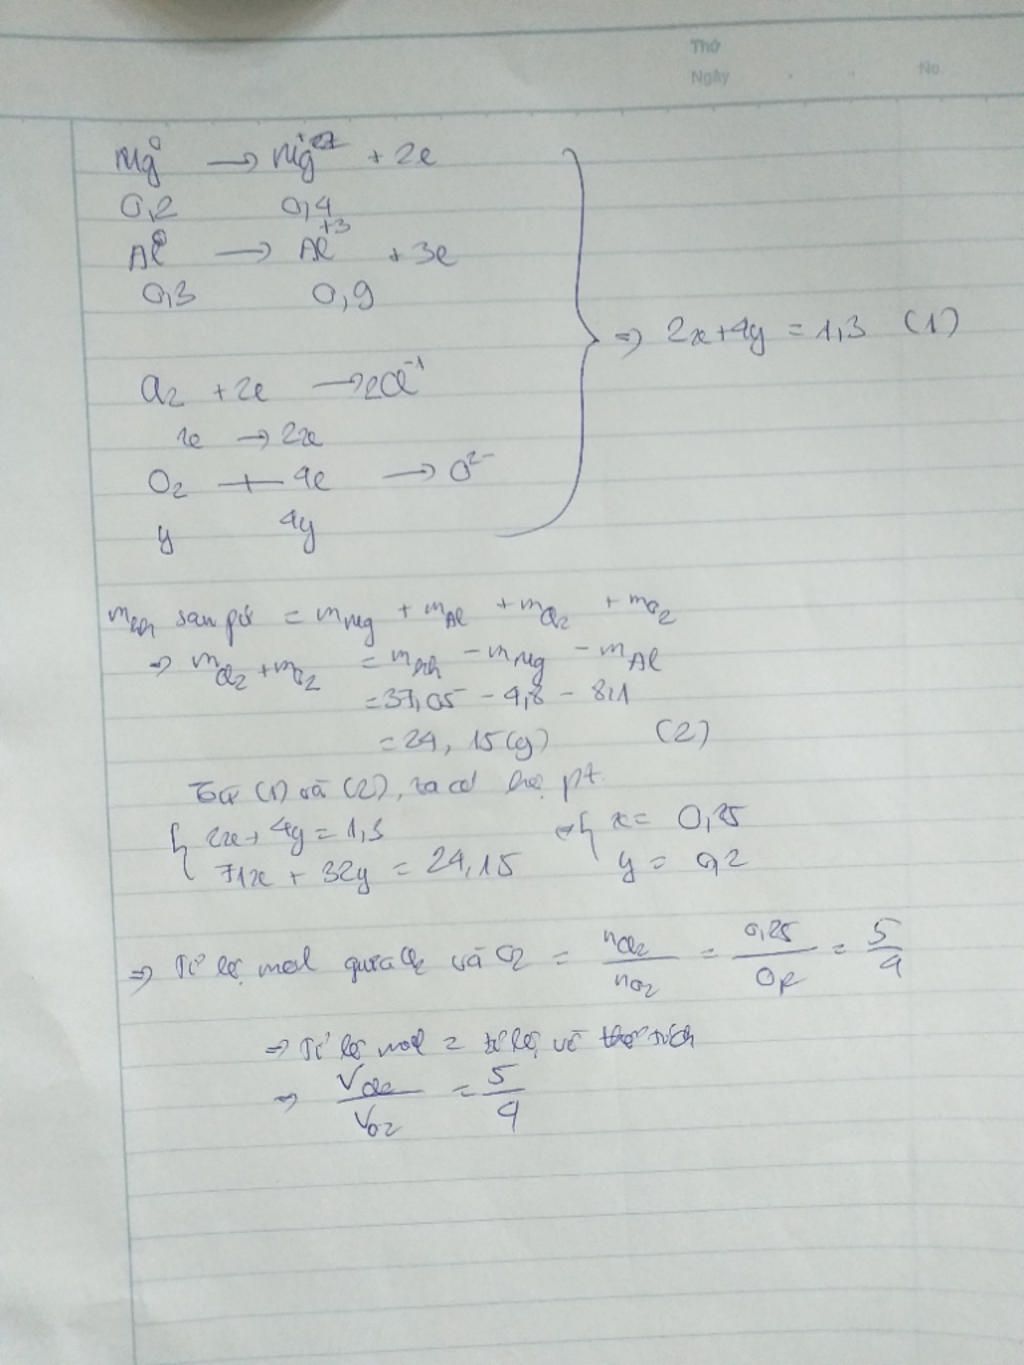 Thứ
Ngày No.
Mg⁰ → Mg⁺² + 2e
0,2 0,4
Al⁰ → Al⁺³ + 3e
0,3 0,9
⇒ 2x+4y = 1,3 (1)
Cl₂ + 2e → 2Cl⁻¹
x → 2x
O₂ + 4e → O²⁻
y 4y
sản pứ = mMg + mAl + mCl₂ + mO₂
⇒ mCl₂ + mO₂ = - mMg - mAl
= 37,05 - 4,8 - 8,1
= 24,15(g) (2)
Từ (1) và (2), ta có hệ pt.
{ 2x + 4y = 1,3 ⇔ { x = 0,25
71x + 32y = 24,15 y = 0,2
⇒ Tỉ lệ mol giữa Cl₂ và O₂ = nCl₂/nO₂ = 0,25/0,2 = 5/4
⇒ Tỉ lệ mol = tỉ lệ về thể tích
⇒ VCl₂/VO₂ = 5/4